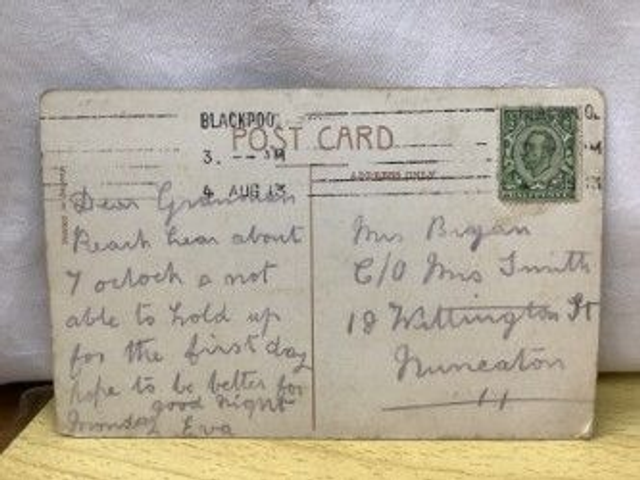 BLACKPOO
POST CARD
3. -- AM
4 AUG 13
ADDRESS ONLY
Dear Grandma
Reach hear about
7 oclock a not
able to hold up
for the first day
hope to be better for
Monday good night
Eva
Mrs Bryan
C/O Mrs Smith
18 Wittington St
Nuneaton